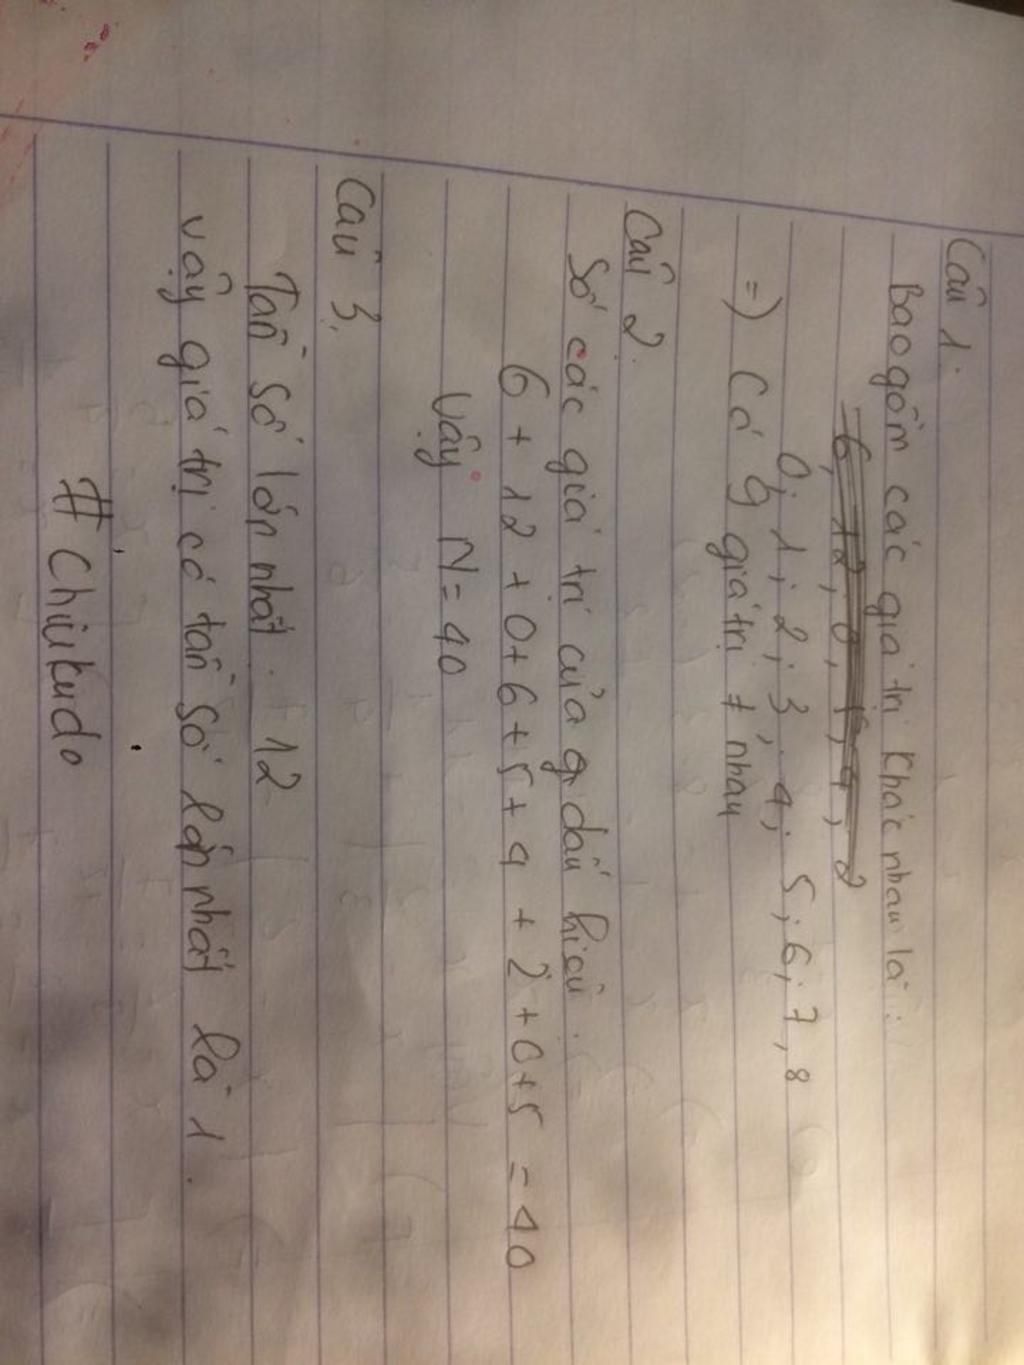 Câu 1.
Bao gồm các giá trị khác nhau là:
0; 1; 2; 3; 4; 5; 6; 7, 8
=) Có 9 giá trị ≠ nhau
Câu 2.
Số các giá trị của dấu hiệu.
6 + 12 + 0 + 6 + 5 + 4 + 2 + 0 + 5 = 40
Vậy N = 40
Câu 3.
Tần số lớn nhất. 12
vậy giá trị có tần số lớn nhất là 1.